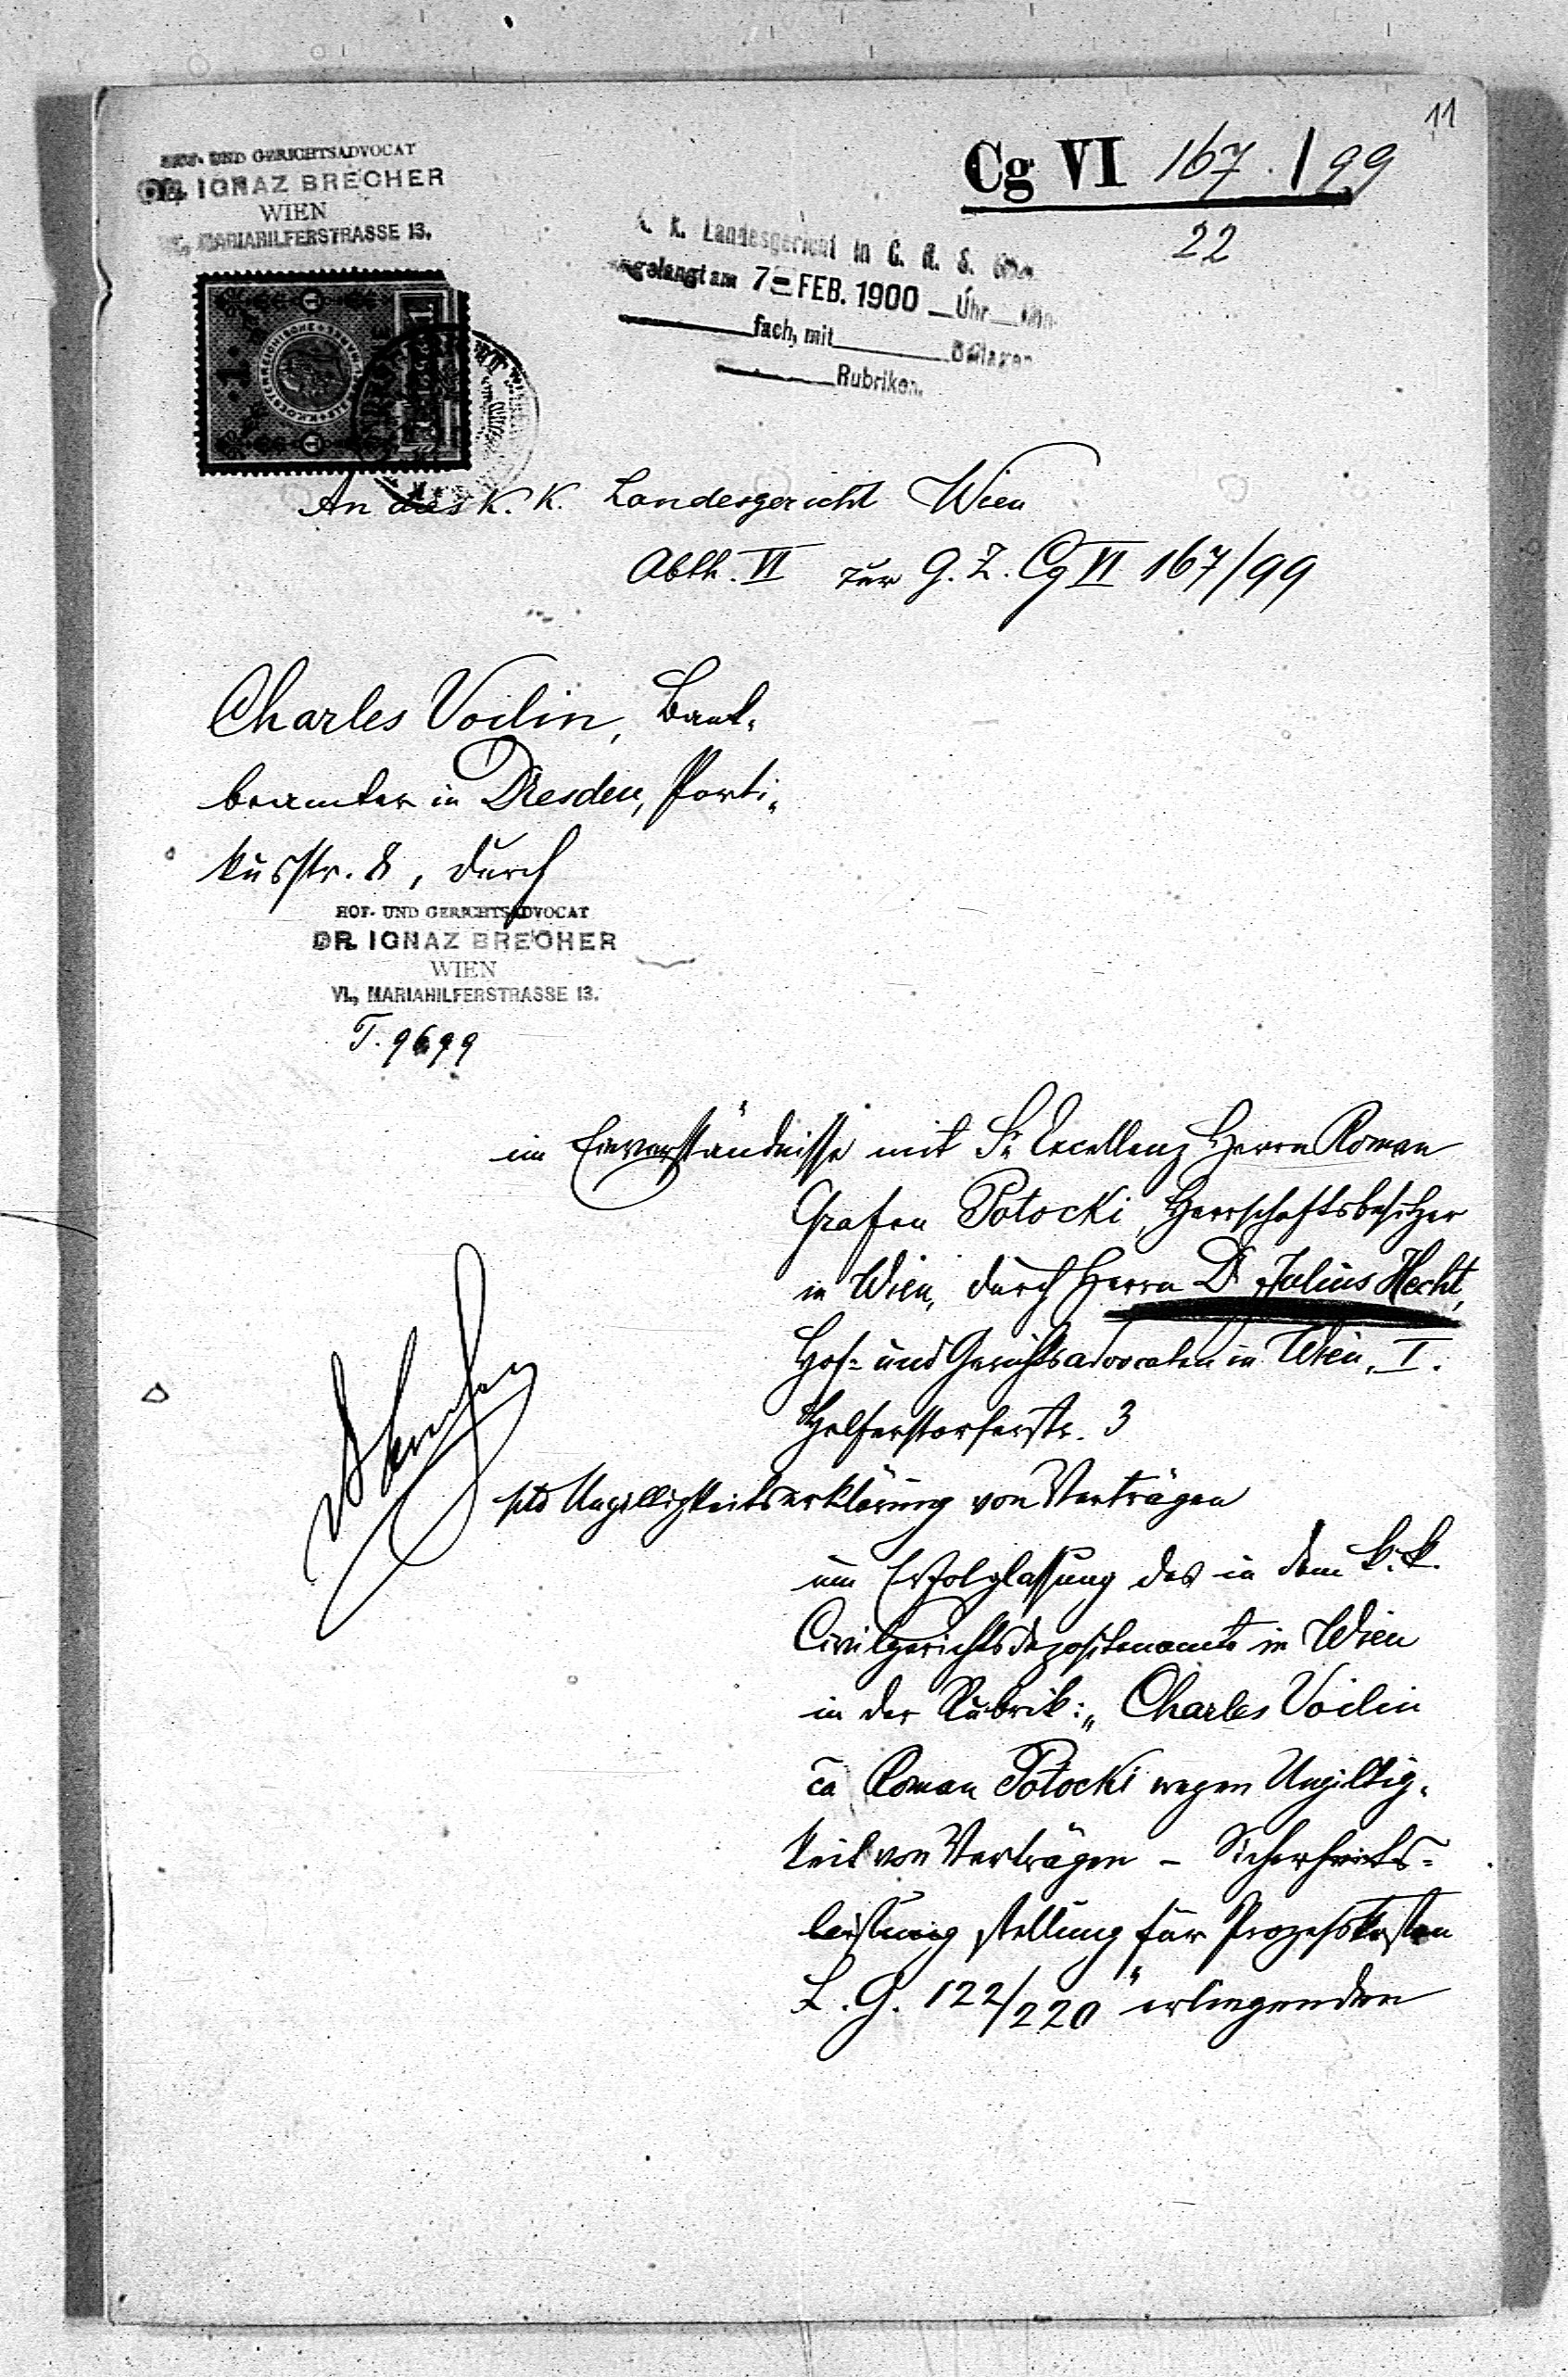 11
HOF- UND GERICHTSADVOCAT
DR. IGNAZ BRECHER
WIEN
VI., MARIAHILFERSTRASSE 13.
Cg VI 167/99
22
K. K. Landesgericht in C. R. S. Wien
eingelangt am 7 - FEB. 1900 Uhr Min.
fach, mit Beilagen
Rubriken.
1
An das K. K. Landesgericht Wien
Abth. VI zur G. Z. Cg VI 167/99
Charles Voilin, Bank-
beamter in Dresden, Porti-
kusstr. 8, durch
HOF- UND GERICHTSADVOCAT
DR. IGNAZ BRECHER
WIEN
VI., MARIAHILFERSTRASSE 13.
im Einverständnisse mit Sr Excellenz Herrn Roman
Grafen Potocki, Herrschaftsbesitzer
in Wien, durch Herrn Dr Julius Hecht,
Hof- und Gerichtsadvocaten in Wien, I.
Helferstorferstr. 3
pto Ungiltigkeitserklärung von Verträgen
um Erfolglassung des in dem k. k.
Civilgerichtsdepositenamte in Wien
in der Rubrik: „Charles Voilin
ca Roman Potocki wegen Ungiltig-
keit von Verträgen – Sicherheits-
leistung stellung für Prozeßkosten
L. G. 122/220" erliegenden